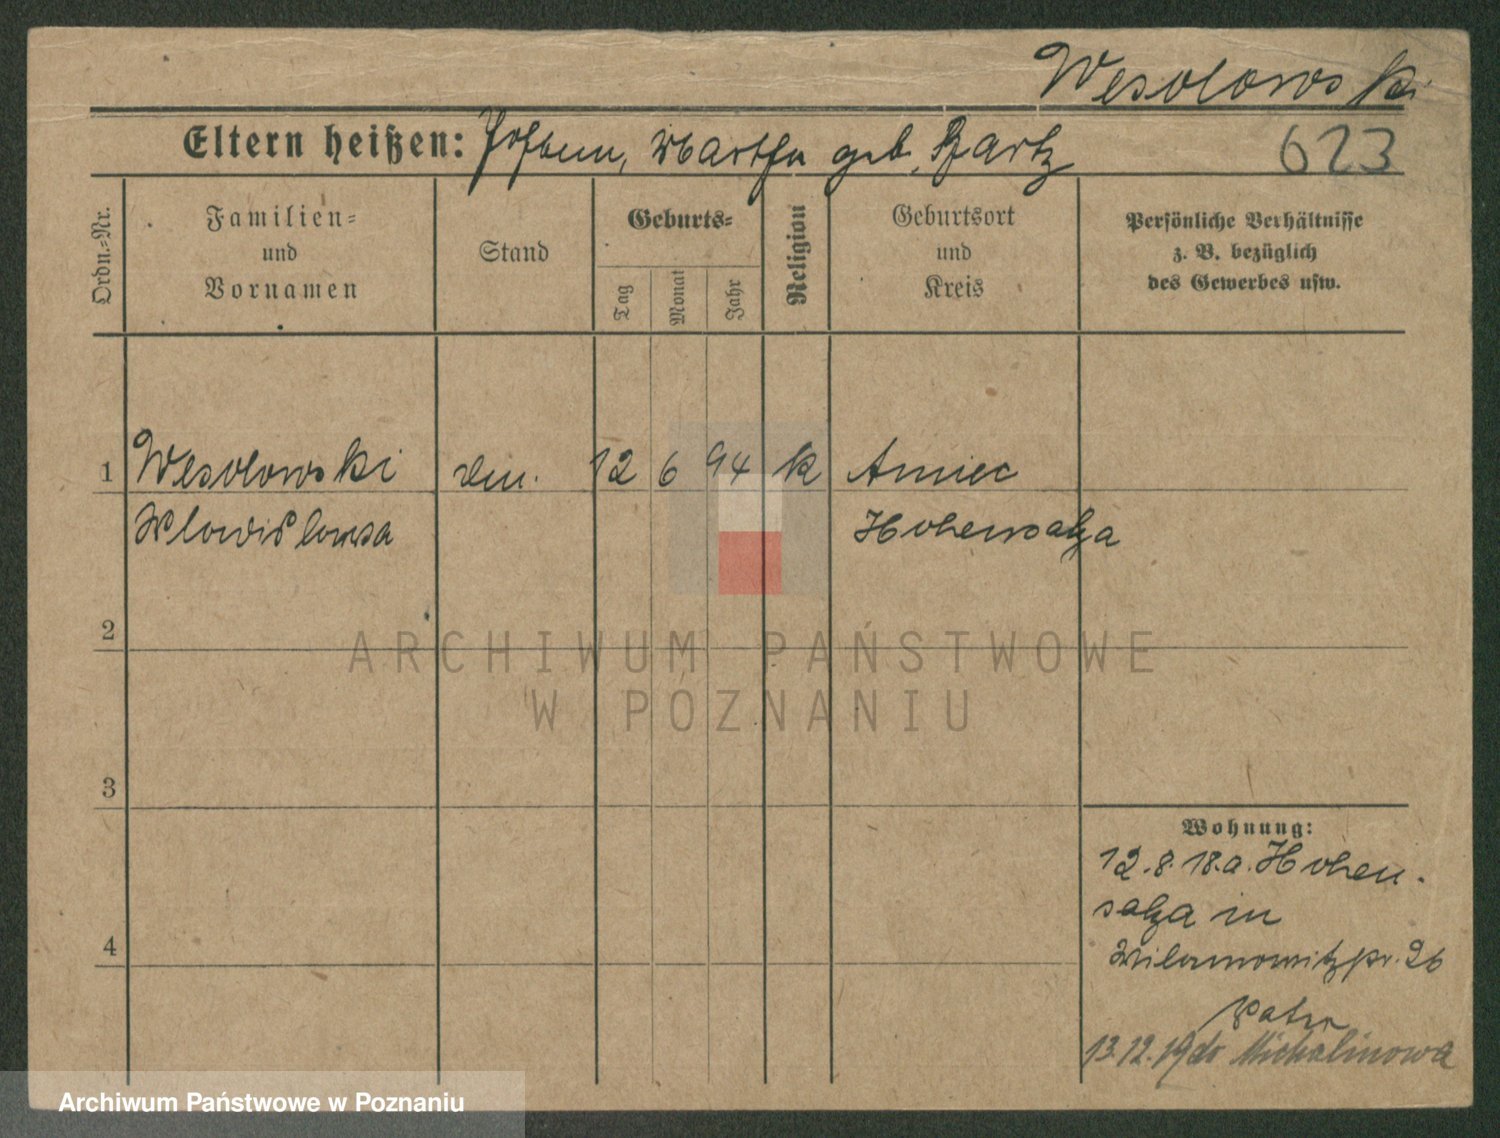 Wesolowski
Eltern heißen: Johann, Martha geb. Szartz
623
Ordn.=Nr.
Familien=
und
Vornamen
Stand
Geburts=
Tag
Monat
Jahr
Religion
Geburtsort
und
Kreis
Persönliche Verhältnisse
z. B. bezüglich
des Gewerbes usw.
1 Wesolowski 12 6 94 k
Hohensalza
2
3
4
ARCHIWUM PAŃSTWOWE
W POZNANIU
Wohnung:
12.8.18.a. Hohen-
salza in
26
13.12.19 do Michalinowa
Archiwum Państwowe w Poznaniu